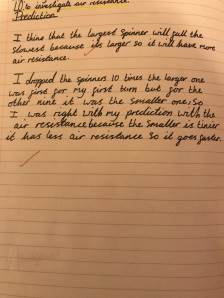 LO: to investigate air resistance.
Prediction
I think that the largest spinner will fall the
slowest because its larger so it will have more
air resistance.
I dropped the spinners 10 times the larger one
was first for my first turn but for the
other nine it was the smaller one, so
I was right with my prediction with the
air resistance because the smaller is tinier
it has less air resistance so it goes faster.